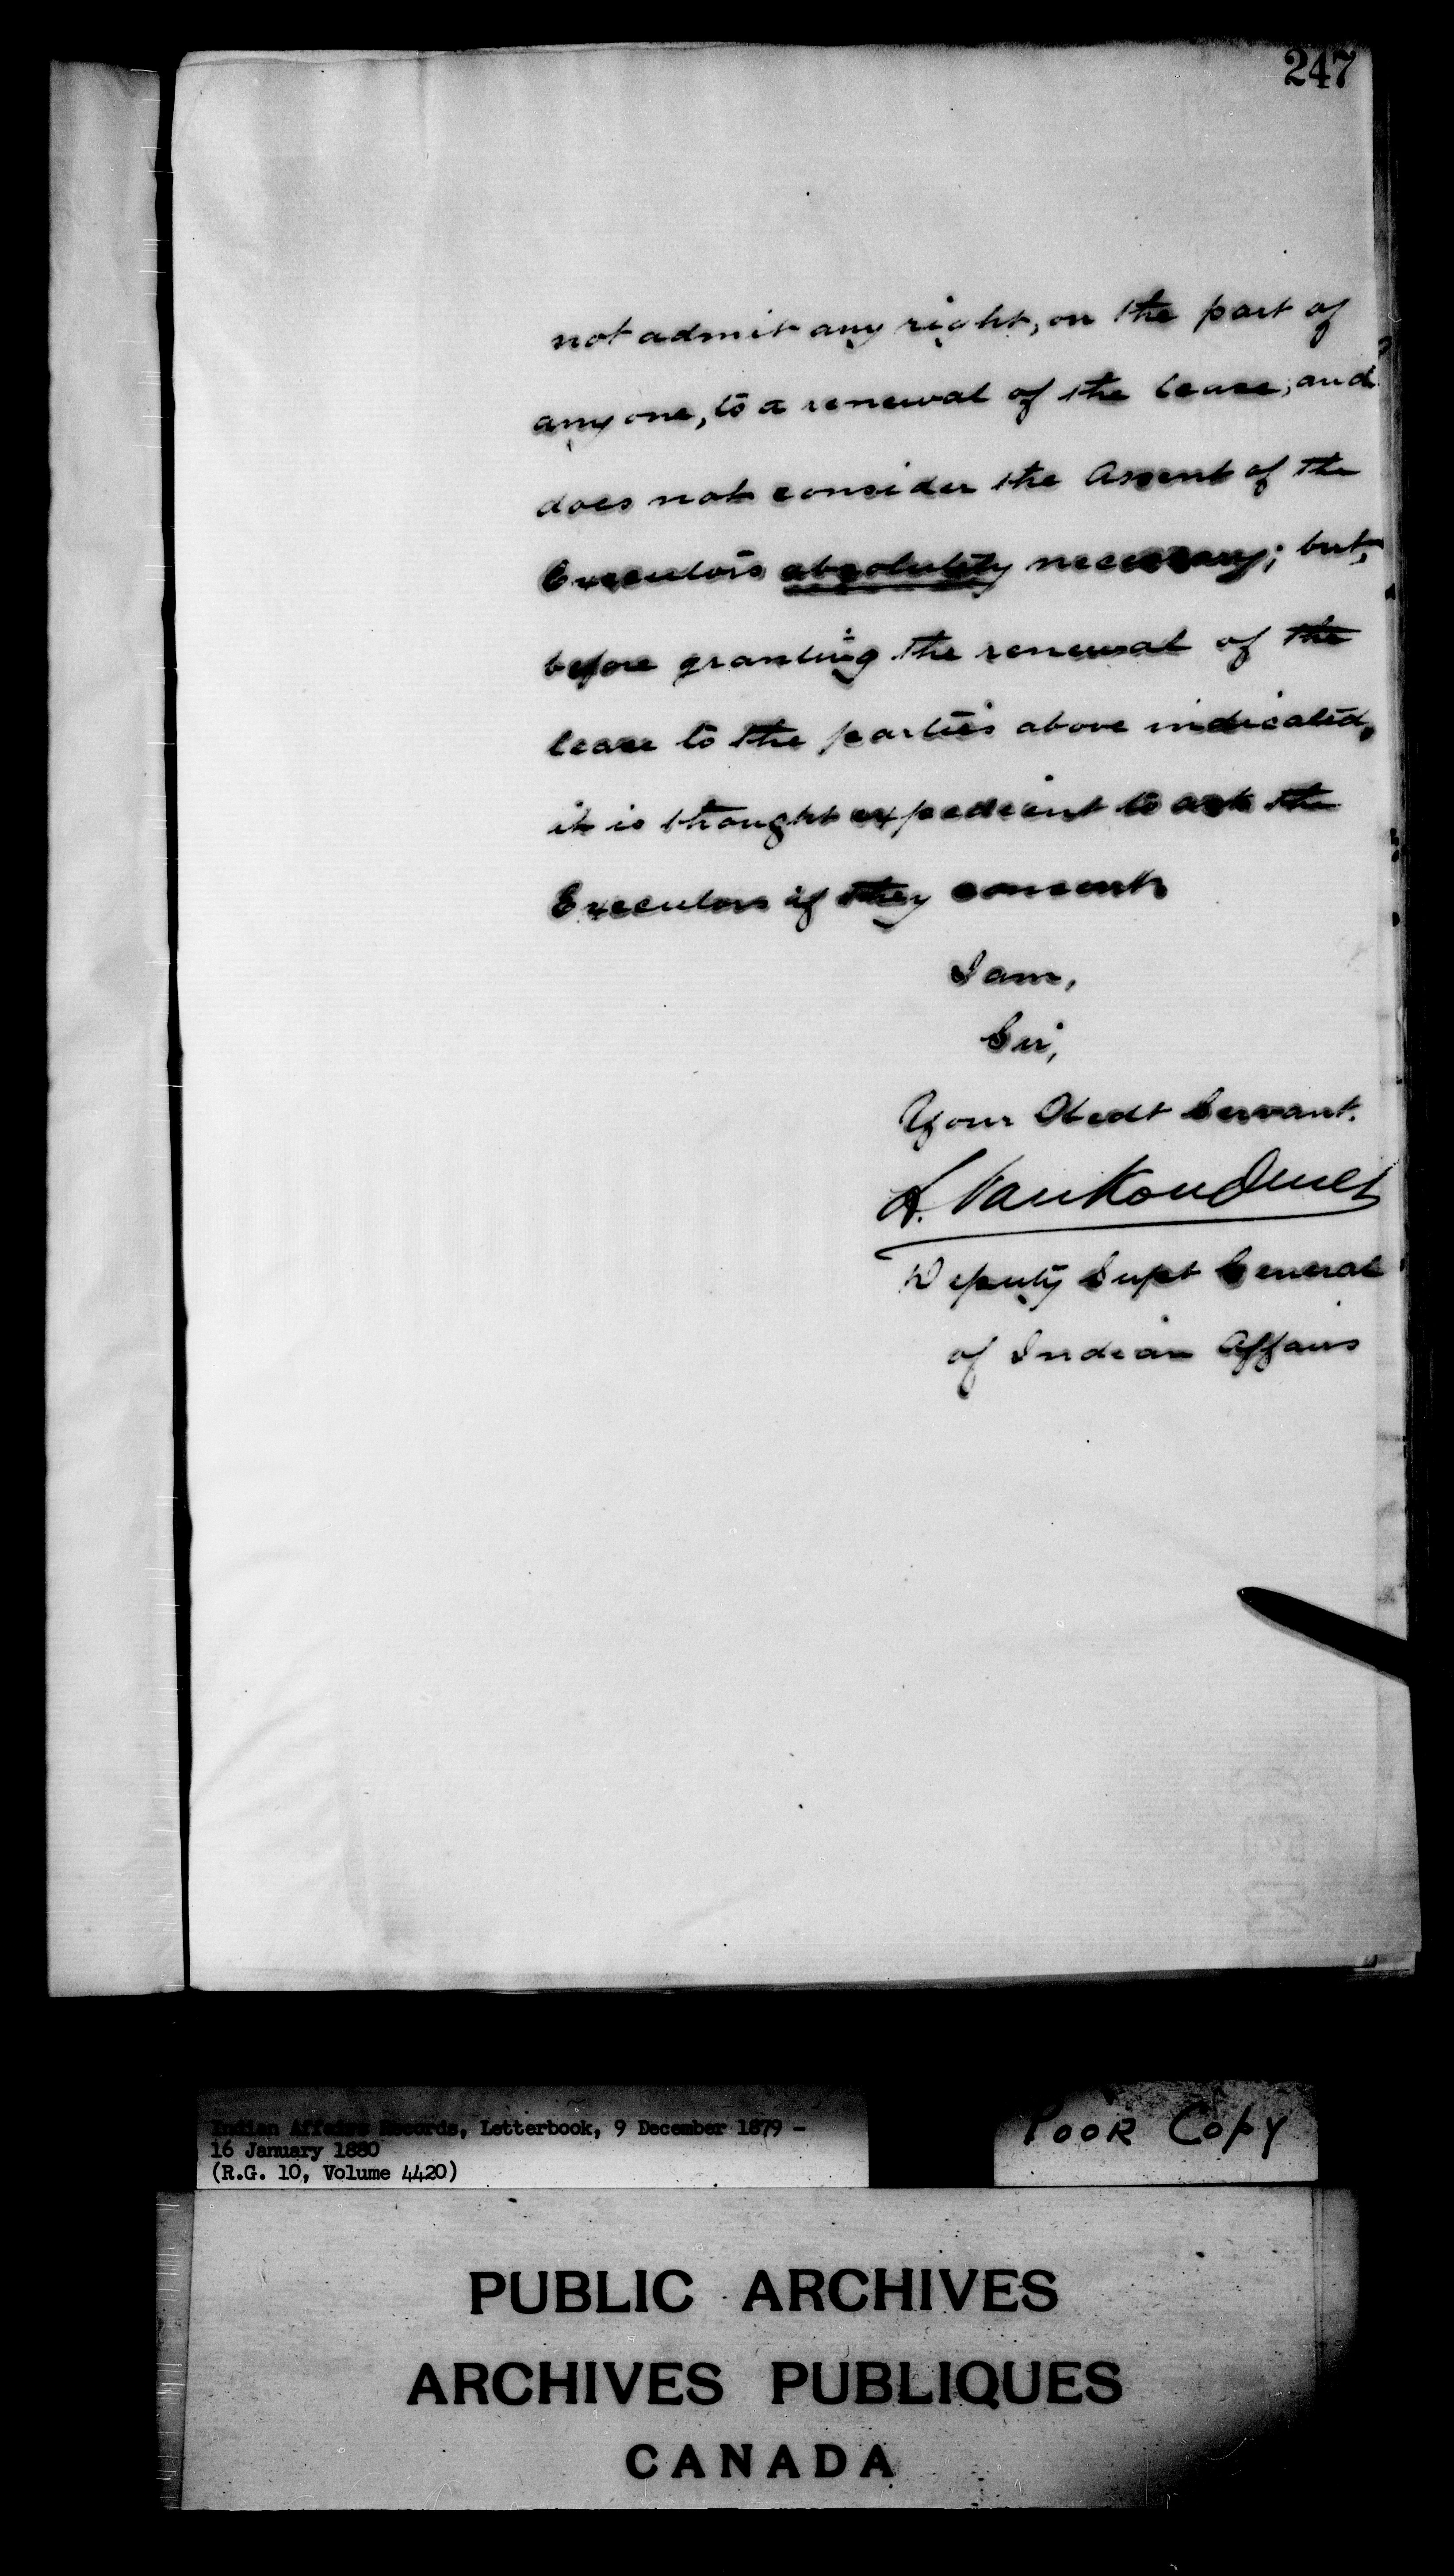 247
not admit any right, on the part of
any one, to a renewal of the lease; and
does not consider the Assent of the
Executors absolutely necessary; but,
before granting the renewal of the
lease to the parties above indicated,
it is thought expedient to ask the
Executors if they consent
I am,
Sir,
Your Obedt Servant.
L. VanKoughnet
Deputy Supt General
of Indian Affairs
Indian Affairs Records, Letterbook, 9 December 1879 -
16 January 1880
(R.G. 10, Volume 4420)
POOR COPY
PUBLIC ARCHIVES
ARCHIVES PUBLIQUES
CANADA